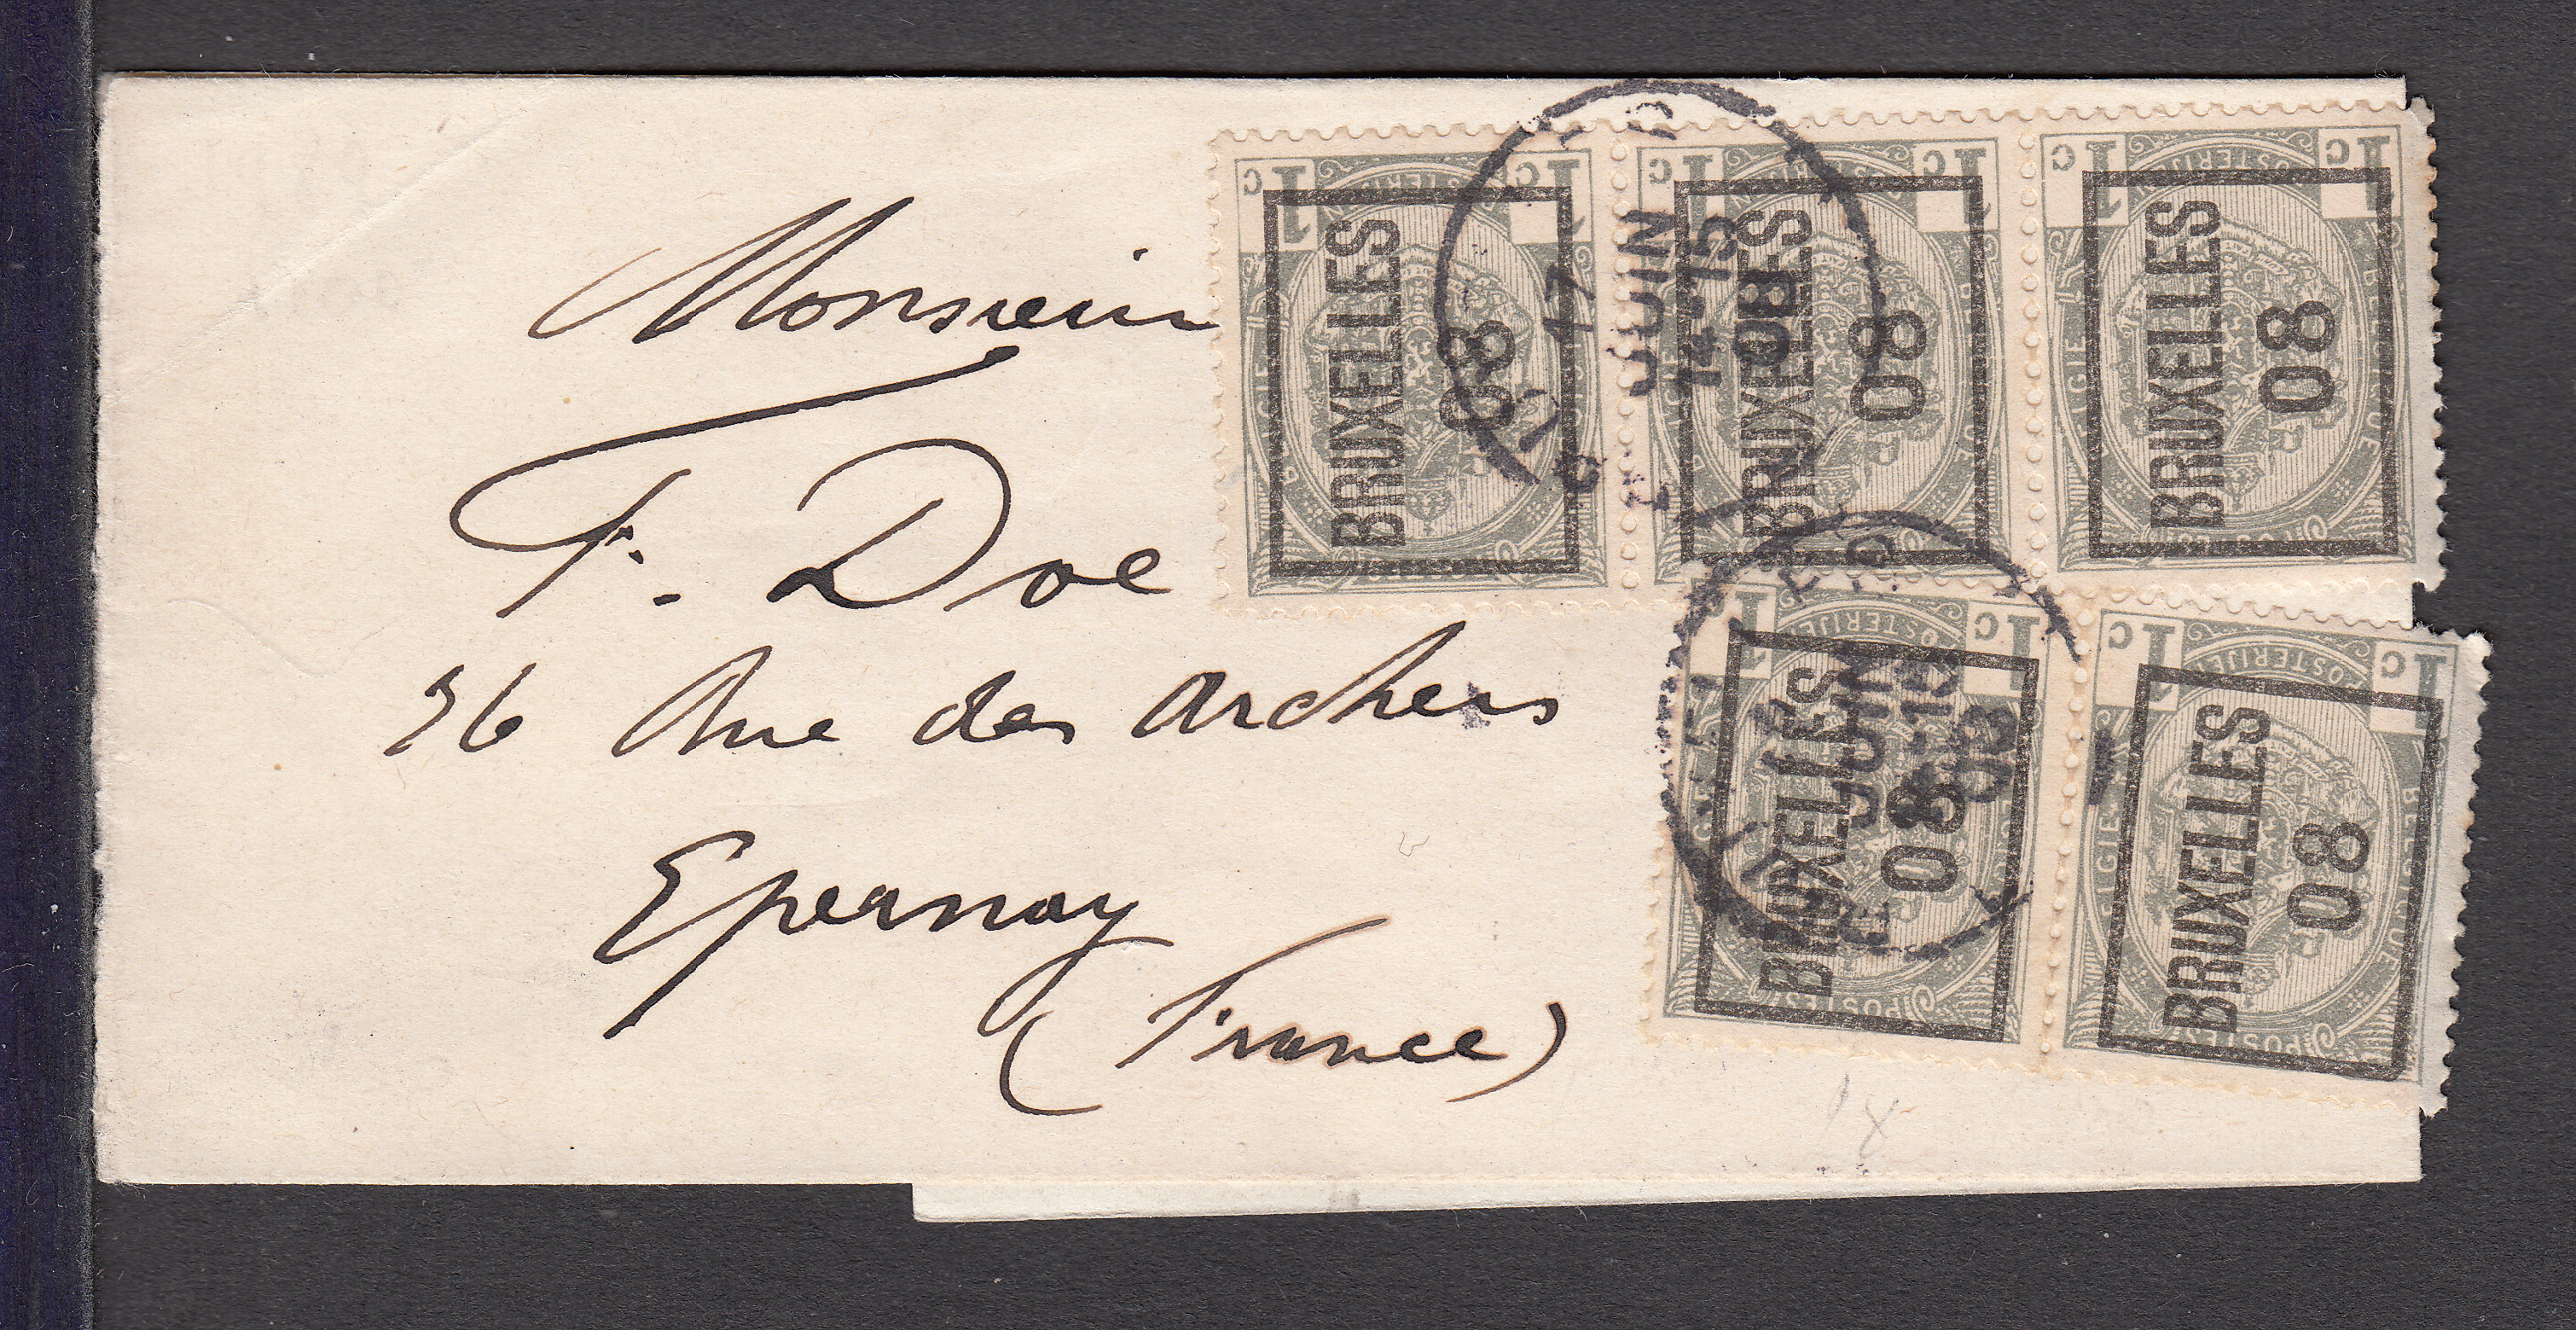 Monsieur
F. Doe
36 Rue des Archers
Epernay
(France)
BRUXELLES
08
BRUXELLES
08
BRUXELLES
08
BRUXELLES
08
BRUXELLES
08
1c 1c
1c 1c
1c 1c
1c 1c
1c 1c
17
JUIN
14-15
08
JUIN
08